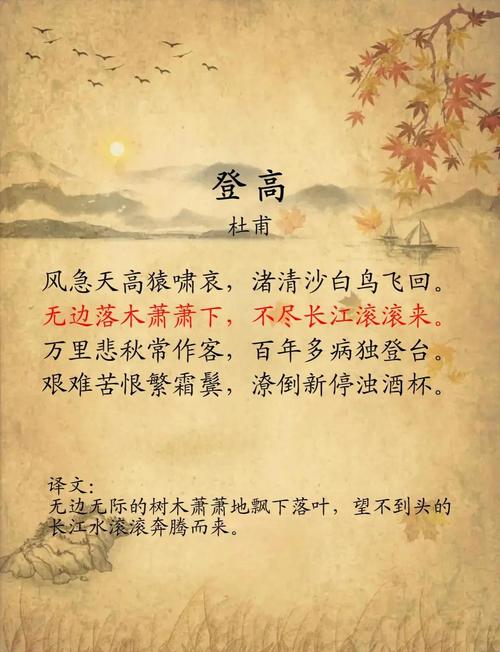 登高
杜甫
风急天高猿啸哀，渚清沙白鸟飞回。
无边落木萧萧下，不尽长江滚滚来。
万里悲秋常作客，百年多病独登台。
艰难苦恨繁霜鬓，潦倒新停浊酒杯。
译文：
无边无际的树木萧萧地飘下落叶，望不到头的
长江水滚滚奔腾而来。